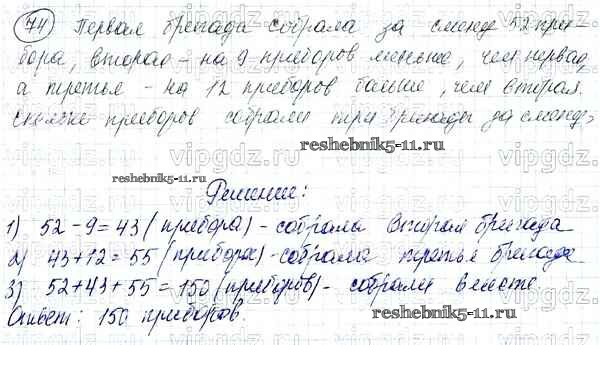 74 Первая бригада собрала за смену 52 при-
бора, вторая - на 9 приборов меньше, чем первая,
а третья - на 12 приборов больше, чем вторая.
Сколько приборов собрали три бригады за смену?
reshebnik5-11.ru
reshebnik5-11.ru
Решение:
1) 52 - 9 = 43 (прибора) - собрала вторая бригада
2) 43 + 12 = 55 (прибора) - собрала третья бригада
3) 52 + 43 + 55 = 150 (приборов) - собрали вместе
Ответ: 150 приборов.
reshebnik5-11.ru